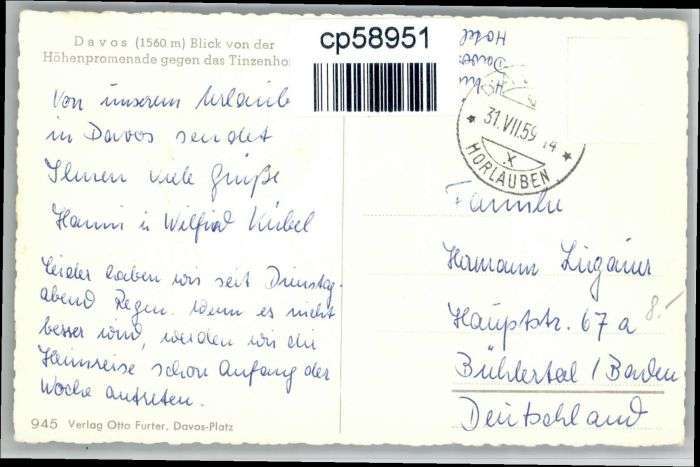 Davos (1560 m) Blick von der
Höhenpromenade gegen das Tinzenho
cp58951
Hotel
Davos
31.VII.59
HORLAUBEN
Von unserem Urlaub
in Davos sendet
Ihnen viele Grüße
Hanni u Wilfried Kübel
Leider haben wir seit Dienstag-
abend Regen. Wenn es nicht
besser wird, werden wir die
Heimreise schon Anfang der
Woche antreten.
Familie
Hermann
Hauptstr. 67a
8.-
Bühlertal / Baden
Deutschland
945 Verlag Otto Furter, Davos-Platz